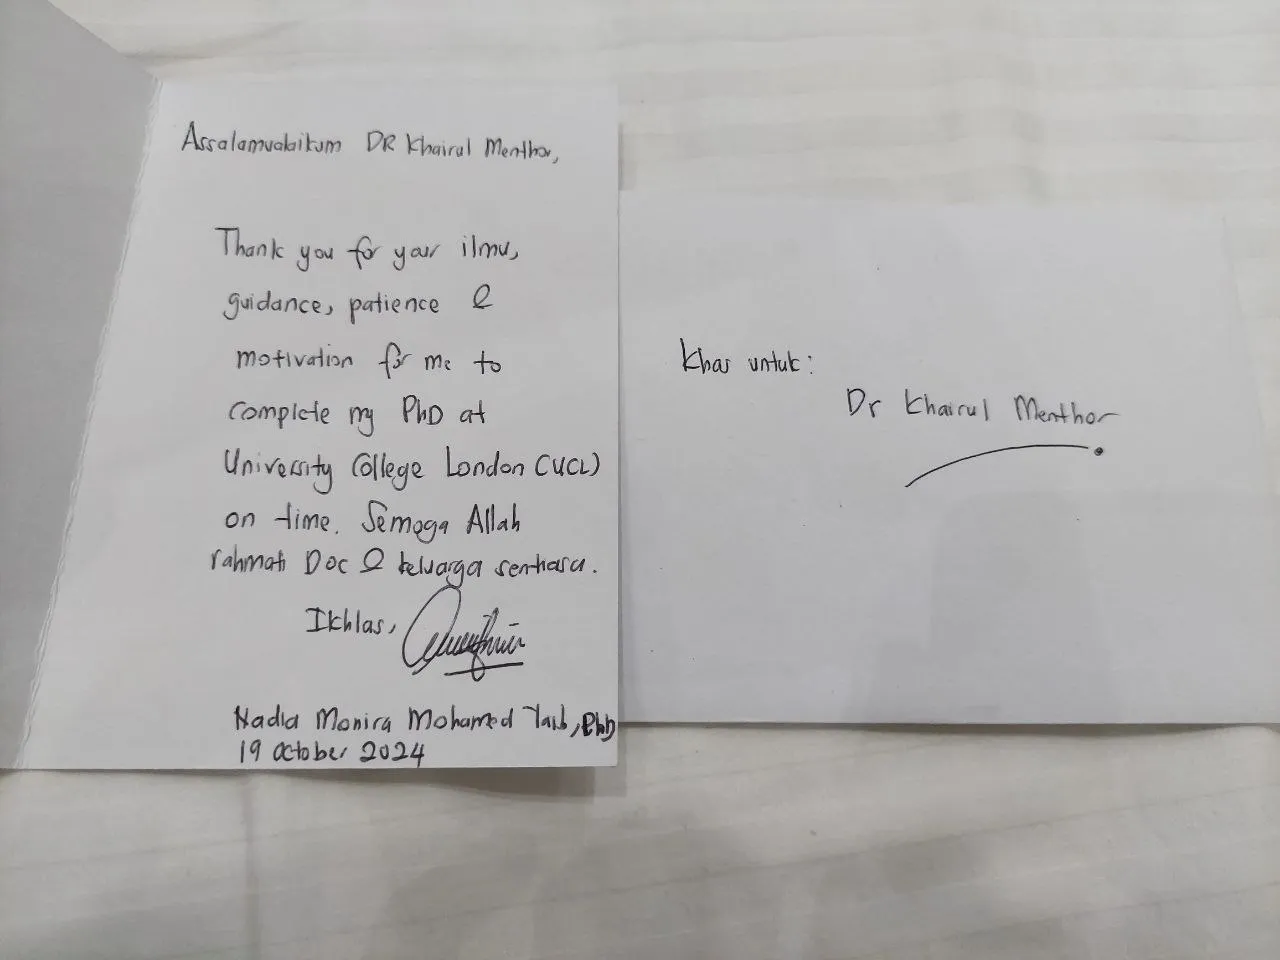 Assalamualaikum DR Khairul Menthor,
Thank you for your ilmu,
guidance, patience &
motivation for me to
complete my PhD at
University College London (UCL)
on time. Semoga Allah
rahmati Doc & keluarga sentiasa.
Ikhlas,
Nadia Monira Mohamed Taib, PhD
19 October 2024
Khas untuk:
Dr Khairul Menthor